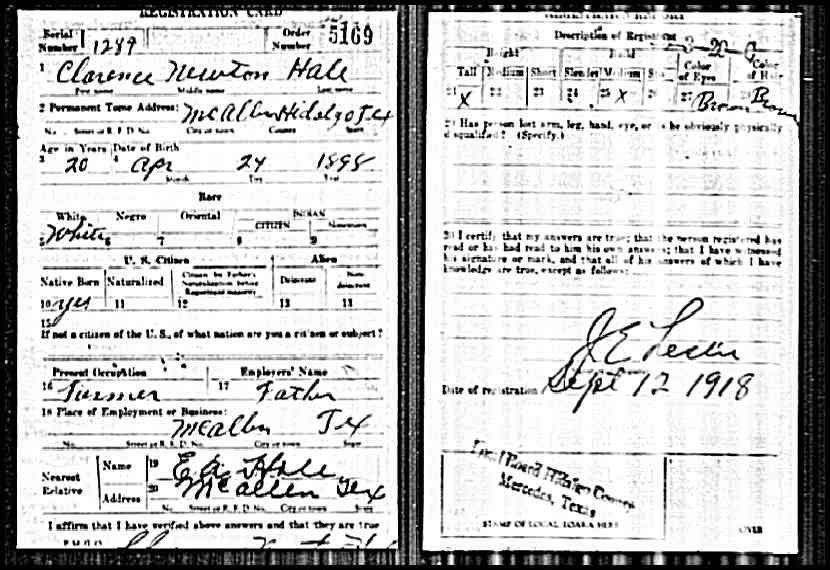 REGISTRATION CARD
Serial Number 1289
Order Number 5169
1 Clarence Newton Hale
First name Middle name Last name
2 Permanent Home Address: McAllen Hidalgo Tex
No. Street or R. F. D. No. City or town County State
Age in Years Date of Birth
3 20 4 Apr 24 1898
Month Day Year
Race
White Negro Oriental INDIAN
CITIZEN
5 White 6 7 8 9
U. S. Citizen Alien
Native Born Naturalized Citizen by Father's Naturalization before Registrant majority Declarant Non-declarant
10 yes 11 12 13 14
15
If not a citizen of the U. S., of what nation are you a citizen or subject?
Present Occupation Employers' Name
16 Farmer 17 Father
18 Place of Employment or Business:
McAllen Tex
No. Street or R. F. D. No. City or town State
Nearest Relative Name 19 E A Hale
Address 20 McAllen Tex
No. Street or R. F. D. No. City or town State
I affirm that I have verified above answers and that they are true
Description of Registrant
Height Build Color of Eyes Color of Hair
Tall Medium Short Slender Medium
21 X 22 23 24 25 X 26 27 Brown 28 Brown
29 Has person lost arm, leg, hand, eye, or is he obviously physically
disqualified? (Specify.)
30 I certify that my answers are true; that the person registered has
read or has had read to him his own answers; that I have witnessed
his signature or mark, and that all of his answers of which I have
knowledge are true, except as follows:
Date of registration Sept 12 1918
Local Board Hidalgo County
Mercedes, Texas
STAMP OF LOCAL BOARD HERE
OVER